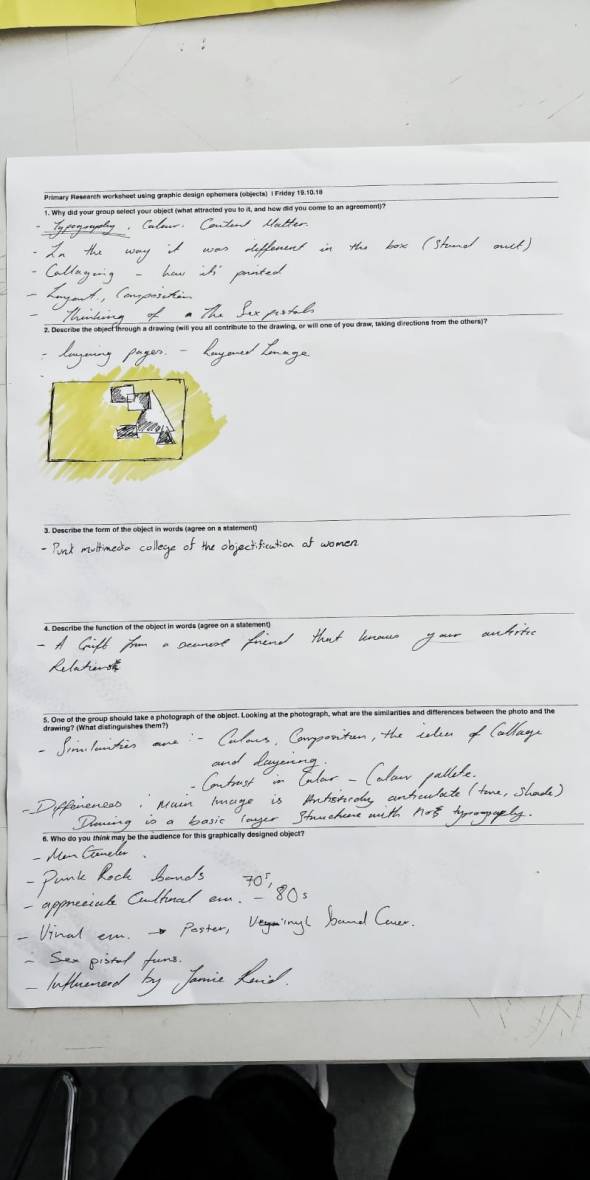 Primary Research worksheet using graphic design ephemera (objects) I Friday 19.10.18
1. Why did your group select your object (what attracted you to it, and how did you come to an agreement)?
- Typography, Colour, Content Matter.
- In the way it was different in the box (Stand out)
- Collaging - how it's printed
- Layout, Composition
- Thinking of - The Sex pistols
2. Describe the object through a drawing (will you all contribute to the drawing, or will one of you draw, taking directions from the others)?
- layering pages. - Layered Image
3. Describe the form of the object in words (agree on a statement)
- Punk multimedia college of the objectification of women
4. Describe the function of the object in words (agree on a statement)
- A Gift from a friend that knows your
5. One of the group should take a photograph of the object. Looking at the photograph, what are the similarities and differences between the photo and the
drawing? (What distinguishes them?)
- Similarities are :- Colours, Composition, the idea of Collage
and layering.
- Contrast in Color - Colour pallete.
- Differences : Main Image is articulate (tone, shade)
Drawing is a basic layer Structure with not typography.
6. Who do you think may be the audience for this graphically designed object?
- Men
- Punk Rock bands 70s,
- appreciate Cultural em. - 80s
- Vinal em. → Poster, Vinyl band Cover.
- Sex pistol fans.
- Influenced by Jamie Reid.